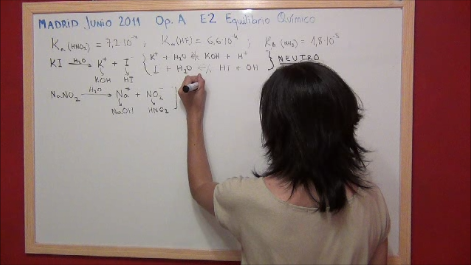 MADRID JUNIO 2011 Op. A E2 Equilibrio Químico
Ka (HNO2) = 7,2·10⁻⁴ ; Ka (HF) = 6,6·10⁻⁴ ; Kb (NH3) = 1,8·10⁻⁵
KI —H2O→ K⁺ + I⁻ { K⁺ + H2O ⇆ KOH + H⁺ } NEUTRO
KOH HI { I⁻ + H2O ⇆ HI + OH⁻
NaNO2 —H2O→ Na⁺ + NO2⁻
NaOH HNO2